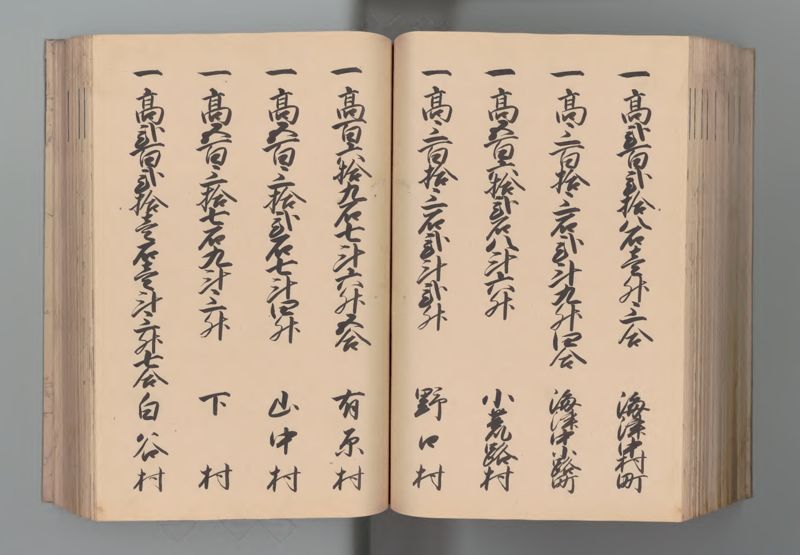 一高弐百弐拾八石壱升三合 海津中村町
一高三百拾三石弐斗九升四合 海津中小路町
一高五百六拾弐石八斗六升 小荒路村
一高三百拾三石弐斗弐升 野口村
一高百六拾九石七斗六升五合 有原村
一高五百三拾弐石七斗四升 山中村
一高五百三拾七石九斗三升 下村
一高弐百弐拾壱石壱斗三升七合 白谷村